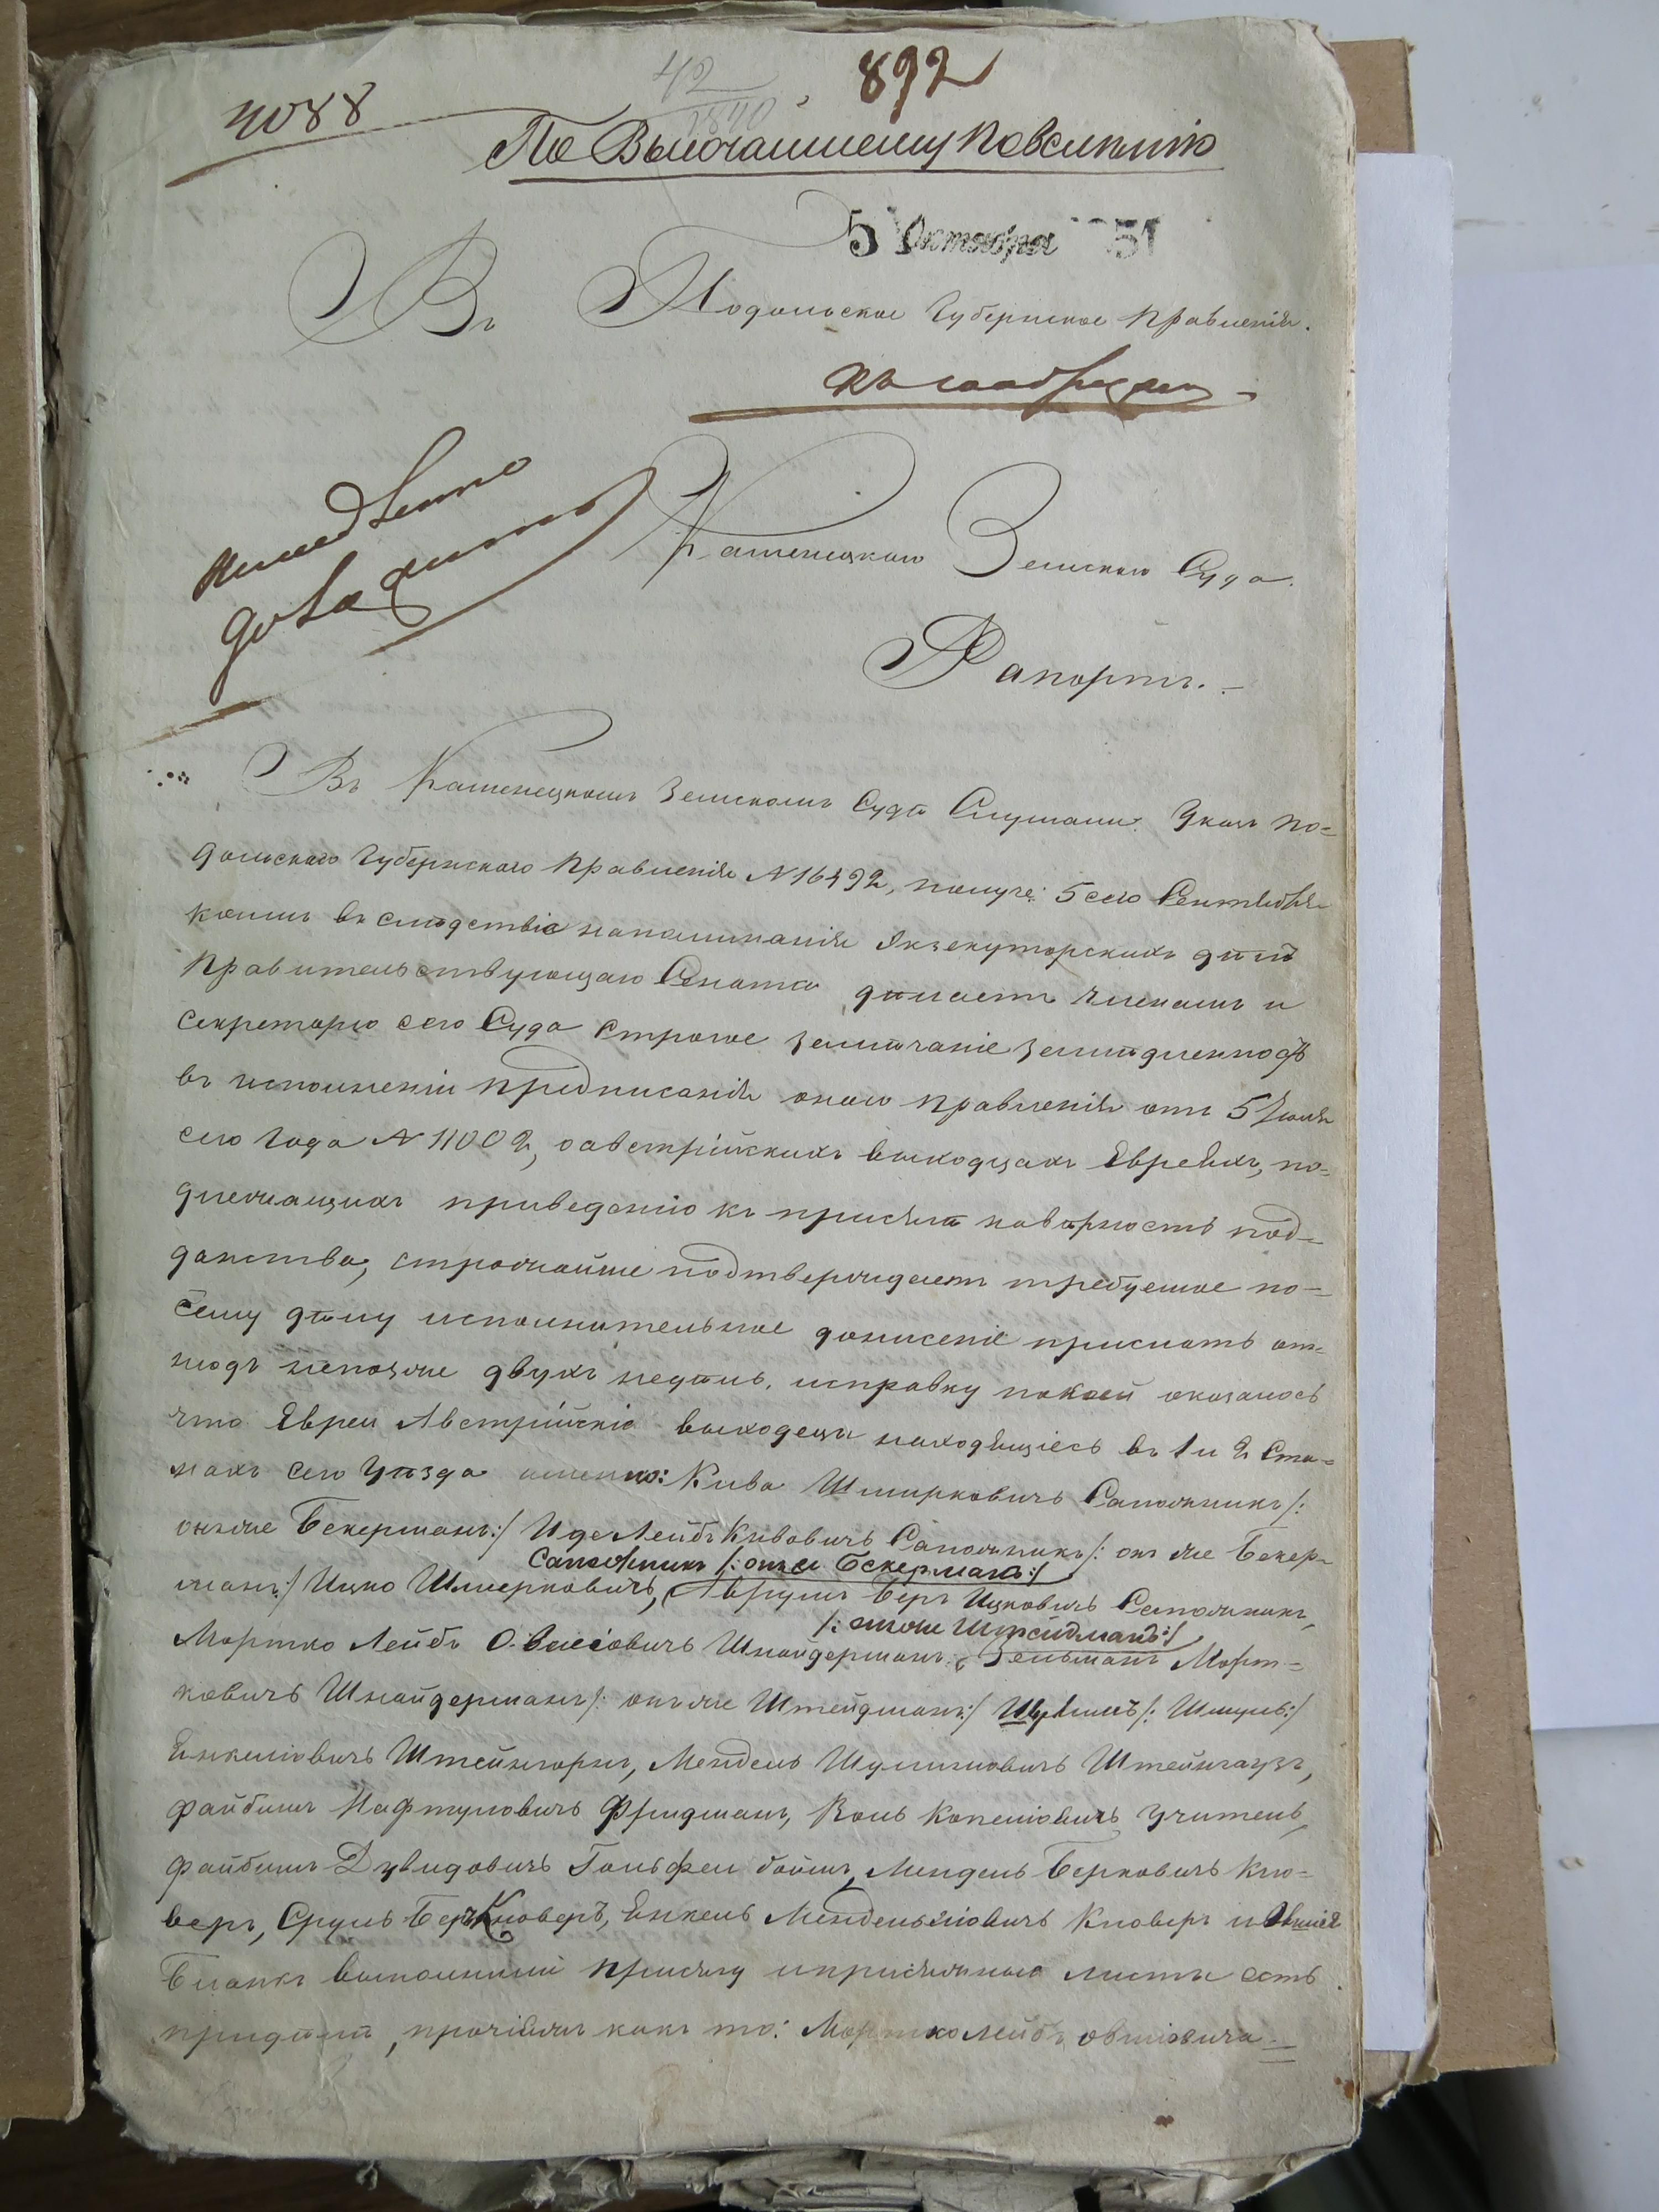 892
По Высочайшему повелѣнію
5 Октября 51
Въ Подольское Губернское Правленіе.
Каменецкаго Земскаго Суда.
немедленно
доложить
Рапортъ.
Въ Каменецкомъ Земскомъ Судѣ Слушали: Указъ По=
дольскаго Губернскаго Правленія N 16492, получе: 5 сего Сентября
коимъ въ слѣдствіе напоминанія Экзекуторскихъ дѣлъ
Правительствующаго Сената дѣлаетъ членамъ и
Секретарю сего Суда строгое замѣчаніе за медленность
въ исполненіи предписанія онаго Правленія отъ 5 Іюля
сего года N 11002, о австрійскихъ выходцахъ Евреяхъ, по=
длежащихъ приведенію къ присягѣ на вѣрность под=
данства, строжайше подтверждаетъ требуемое по=
сему дѣлу исполнительное донесеніе прислать от=
нюдъ непозже двухъ недѣль. и справку по коей оказалось
что Евреи Австрійскіе выходецы находящіесь въ 1 и 2 Ста=
нахъ сего Уѣзда именно: Кива Шмирковичъ Сапожникъ /:
онъ же Бекерманъ:/ Иде Лейбъ Кивовичъ Сапожникъ /: онъ же Бекер=
Сапожникъ /: онъ же Бекерманъ:/
манъ:/ Ицко Шмерковичъ, Аврумъ Беръ Ицковичъ Сапожникъ,
/: онъ же Штейдманъ:/
Мортко Лейбъ Овшіовичъ Шнайдерманъ, Зельманъ Морт=
ковичъ Шнайдерманъ /: онъ же Штейдманъ:/ /: Шмуль:/
Енкеліовичъ Штейнгорнъ, Мендель Шулимовичъ Штейнгаузъ,
Файбишъ Нафтуловичъ Фридманъ, Копеліовичъ Учитель,
Файбишъ Дувидовичъ Гольфельбоймъ, Мендель Берковичъ Кно=
веръ, Сруль Беръ Кноверъ, Енкель Мендельліовичъ Кноверъ и
Бланкъ выполнили присягу и присяжные листы есть
при дѣлѣ, прочіимъ какъ то: Мортко Лейбъ Овшіовича=